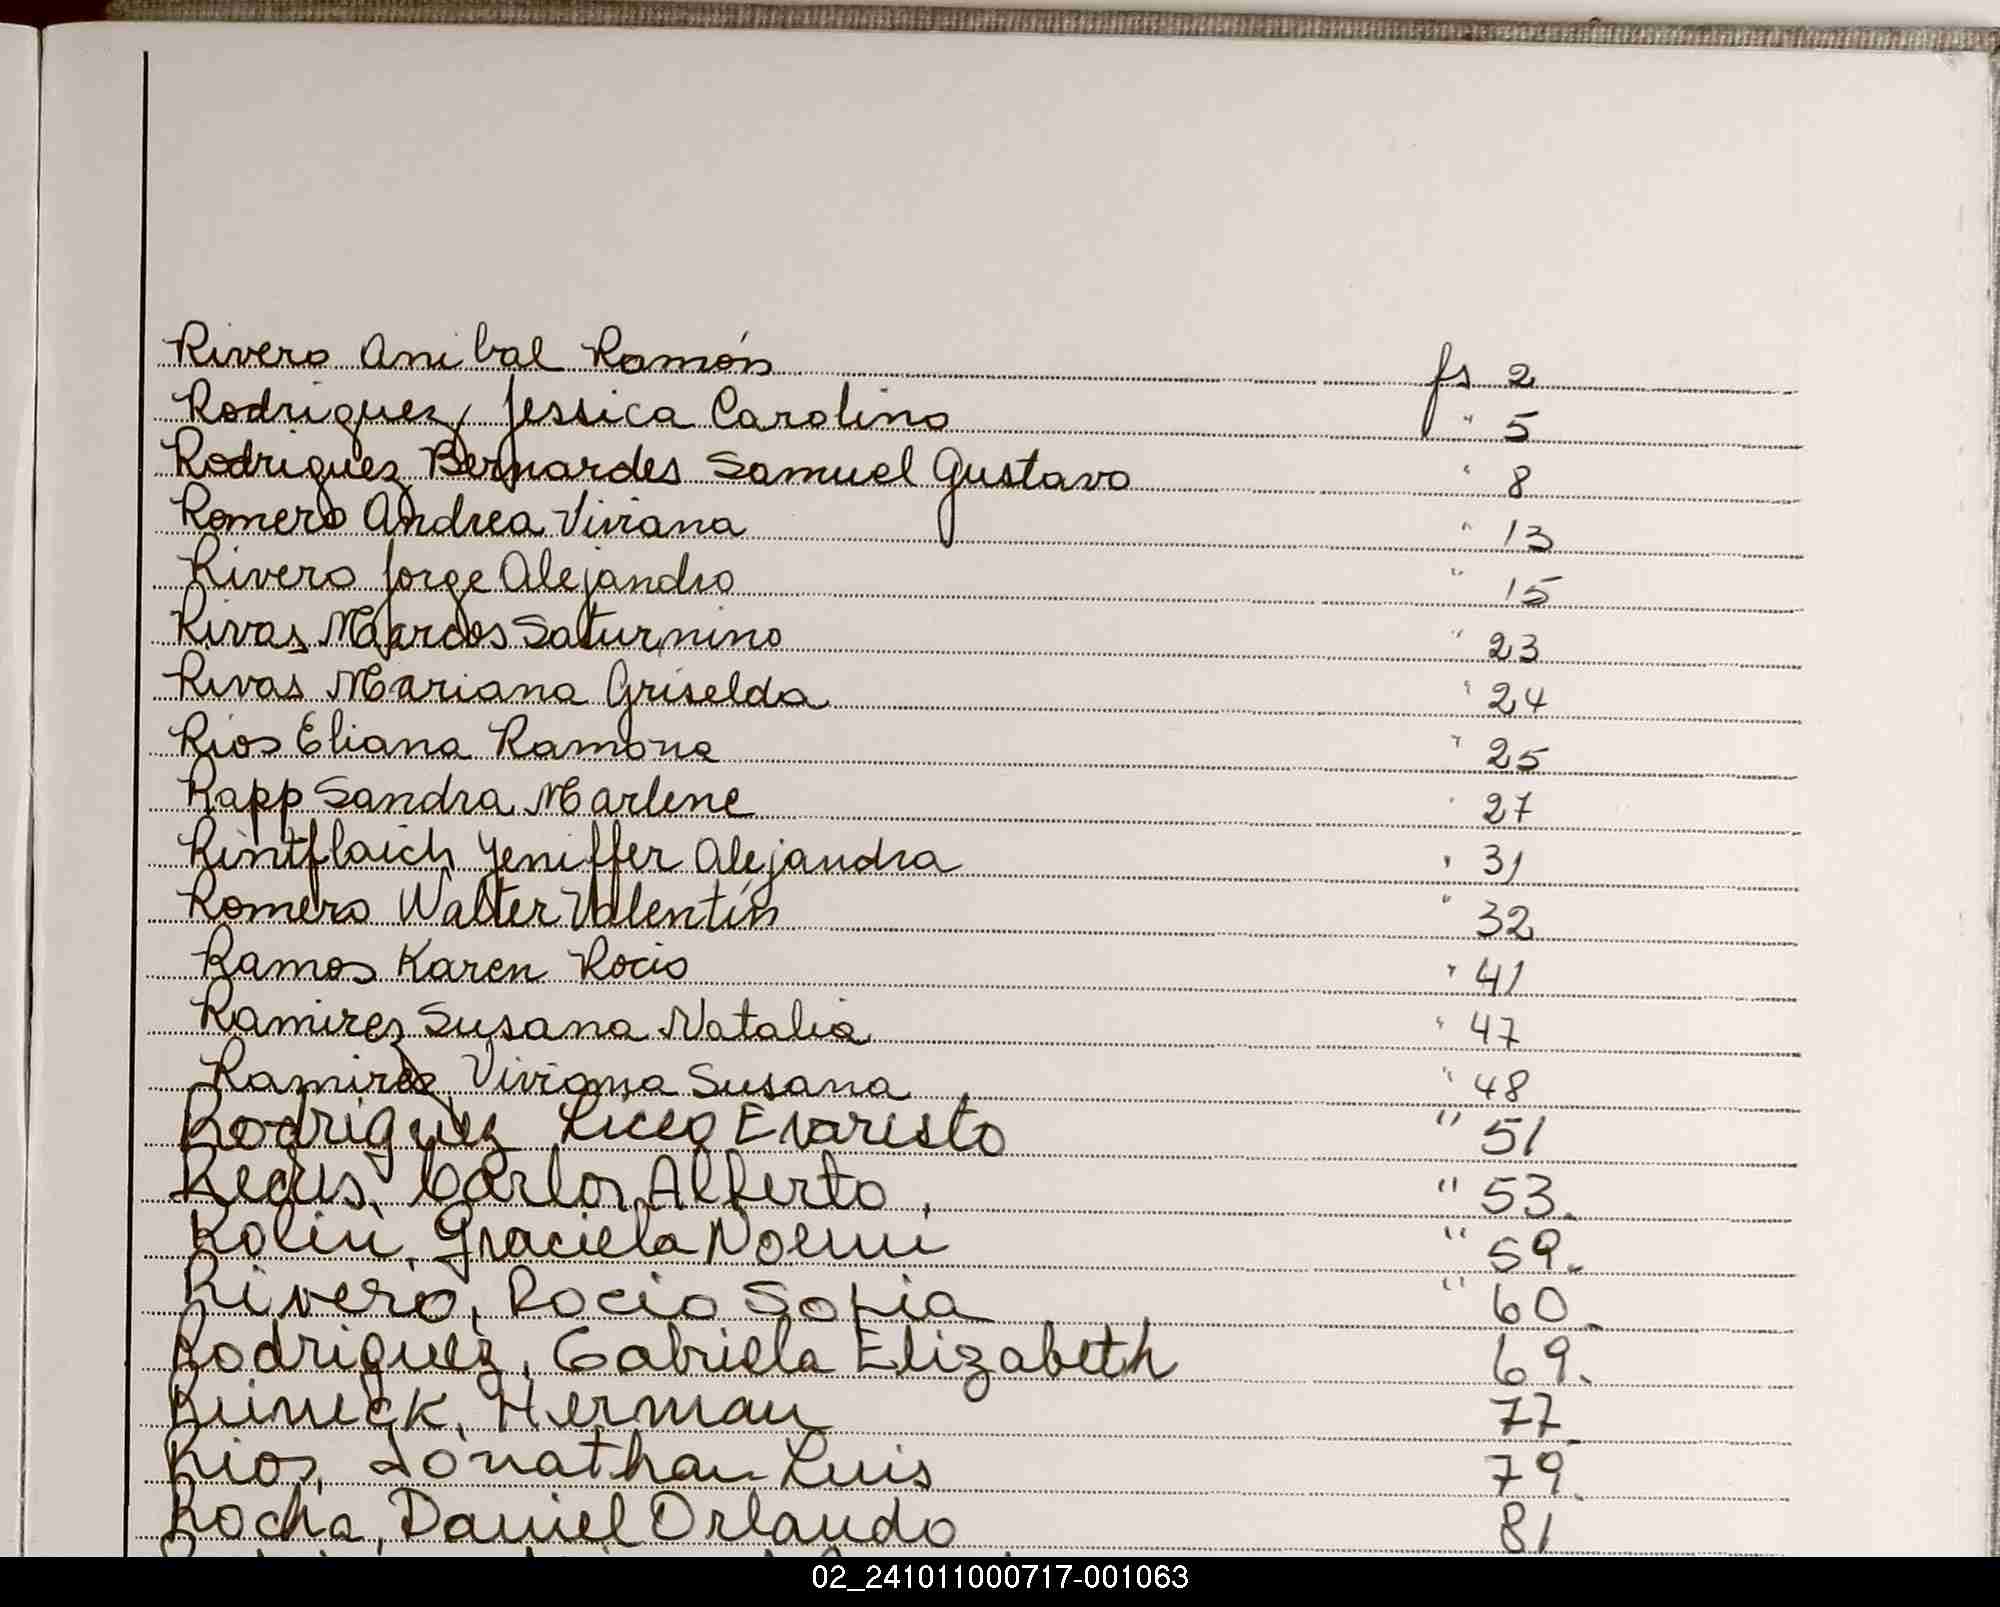 Rivero Anibal Ramón fs 2
Rodriguez, Jessica Carolina " 5
Rodriguez Bernardes Samuel Gustavo " 8
Romero Andrea Viviana " 13
Rivero Jorge Alejandro " 15
Rivas Marcos Saturnino " 23
Rivas Mariana Griselda " 24
Rios Eliana Ramona " 25
Rapp Sandra Marlene " 27
Rintflaich Yeniffer Alejandra " 31
Romero Walter Valentín " 32
Ramos Karen Rocio " 41
Ramirez Susana Natalia " 47
Ramirez Viviana Susana " 48
Rodriguez Evaristo " 51
Carlos Alberto, " 53.
Rolin, Graciela Noemi " 59.
Rivero, Rocio Sofia " 60.
Rodriguez, Gabriela Elizabeth 69.
Herman 77.
Rios, Jonathan Luis 79.
Rocha, Daniel Orlando 81
02_241011000717-001063